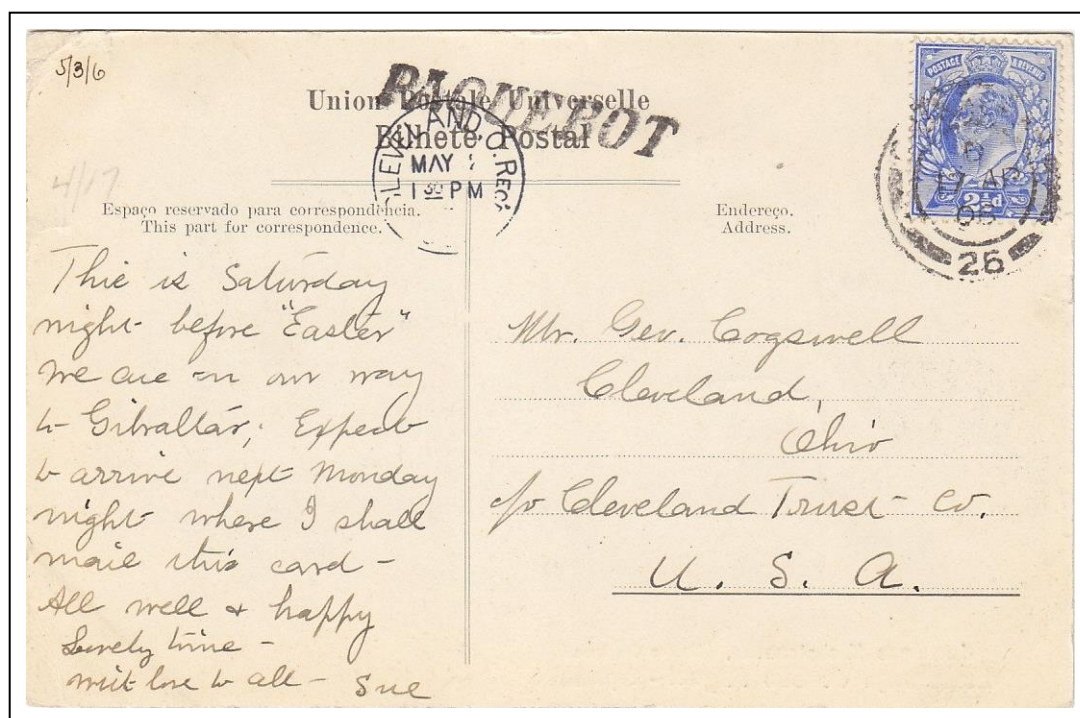 5/3/6
PAQUEBOT
Union Postale Universelle
Bilhete Postal
CLEVELAND, O. REC'D
MAY
1 30 PM
4/17
POSTAGE & REVENUE
17 AP
08
2½d
26
Espaço reservado para correspondencia.
This part for correspondence.
Endereço.
Address.
This is Saturday
night before "Easter"
We are on our way
to Gibraltar, Expect
to arrive next Monday
night where I shall
mail this card -
All well & happy
Lovely time -
wit love to all - Sue
Mr. Geo. Cogswell
Cleveland,
Ohio
c/o Cleveland Trust Co.
U. S. A.